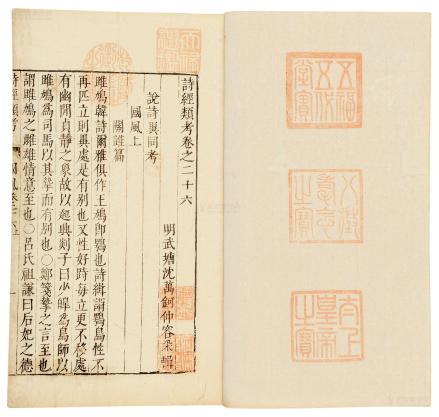 五福五代堂寶
八徵耄念之寶
太上皇帝之寶
詩經類考卷之二十六
明武塘沈萬鈳仲容采輯
說詩異同考
國風上
關雎篇
雎鳩韓詩爾雅俱作王鳩即鶚也詩緝謂鶚鳥性不
再匹立則異處是有別也又性好時每立更不移處
有幽閒貞靜之象故以起興剡子曰少皞為鳥師以
雎鳩為司馬以其摯而有別也○鄭箋摯之言至也
謂雎鳩之雌雄情意至也○呂氏祖謙曰后妃之德
詩經類考 國風卷二十六上 一